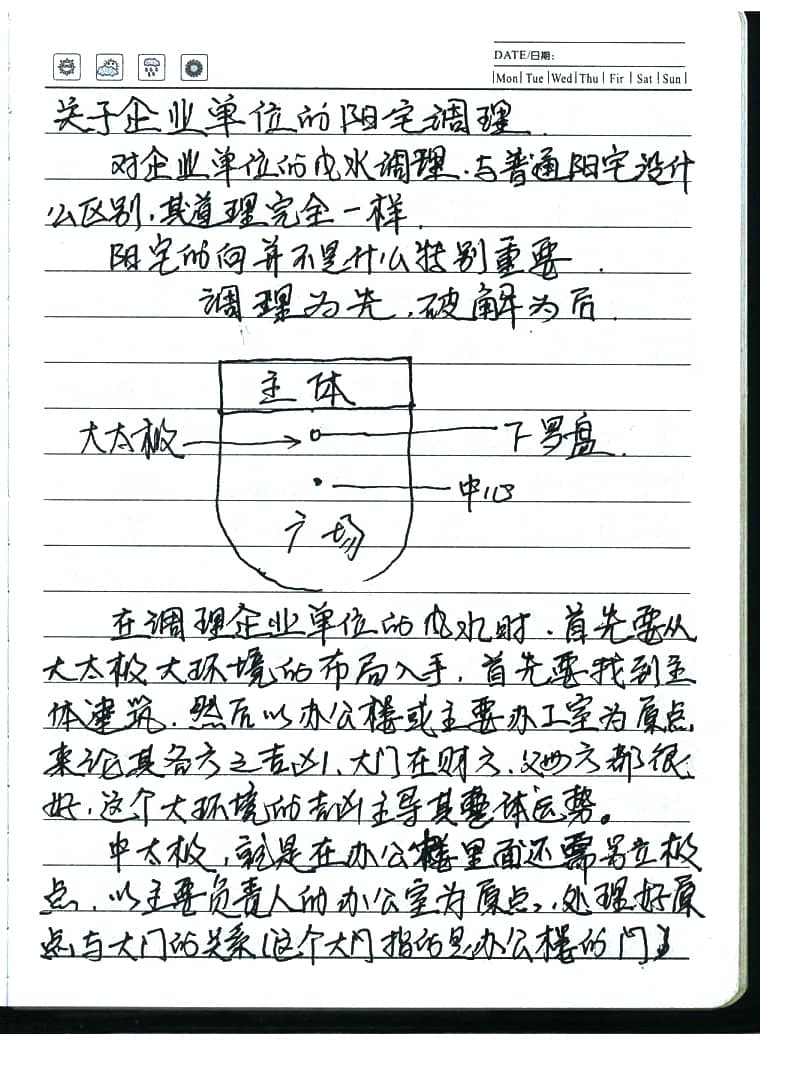 DATE/日期:
Mon Tue Wed Thu Fir Sat Sun
关于企业单位的阳宅调理.
对企业单位的风水调理.与普通阳宅没什
么区别,其道理完全一样.
阳宅的向并不是什么特别重要.
调理为先,破解为后.
主体
大太极
下罗盘.
中心
广场
在调理企业单位的风水时.首先要从
大太极大环境的布局入手,首先要找到主
体建筑.然后以办公楼或主要办工室为原点
来论其各方之吉凶,大门在财方、父母方都很
好,这个大环境的吉凶主导其整体运势。
中太极,就是在办公楼里面还需另立极
点.以主要负责人的办公室为原点,处理好原
点与大门的关系(这个大门指的是办公楼的门)